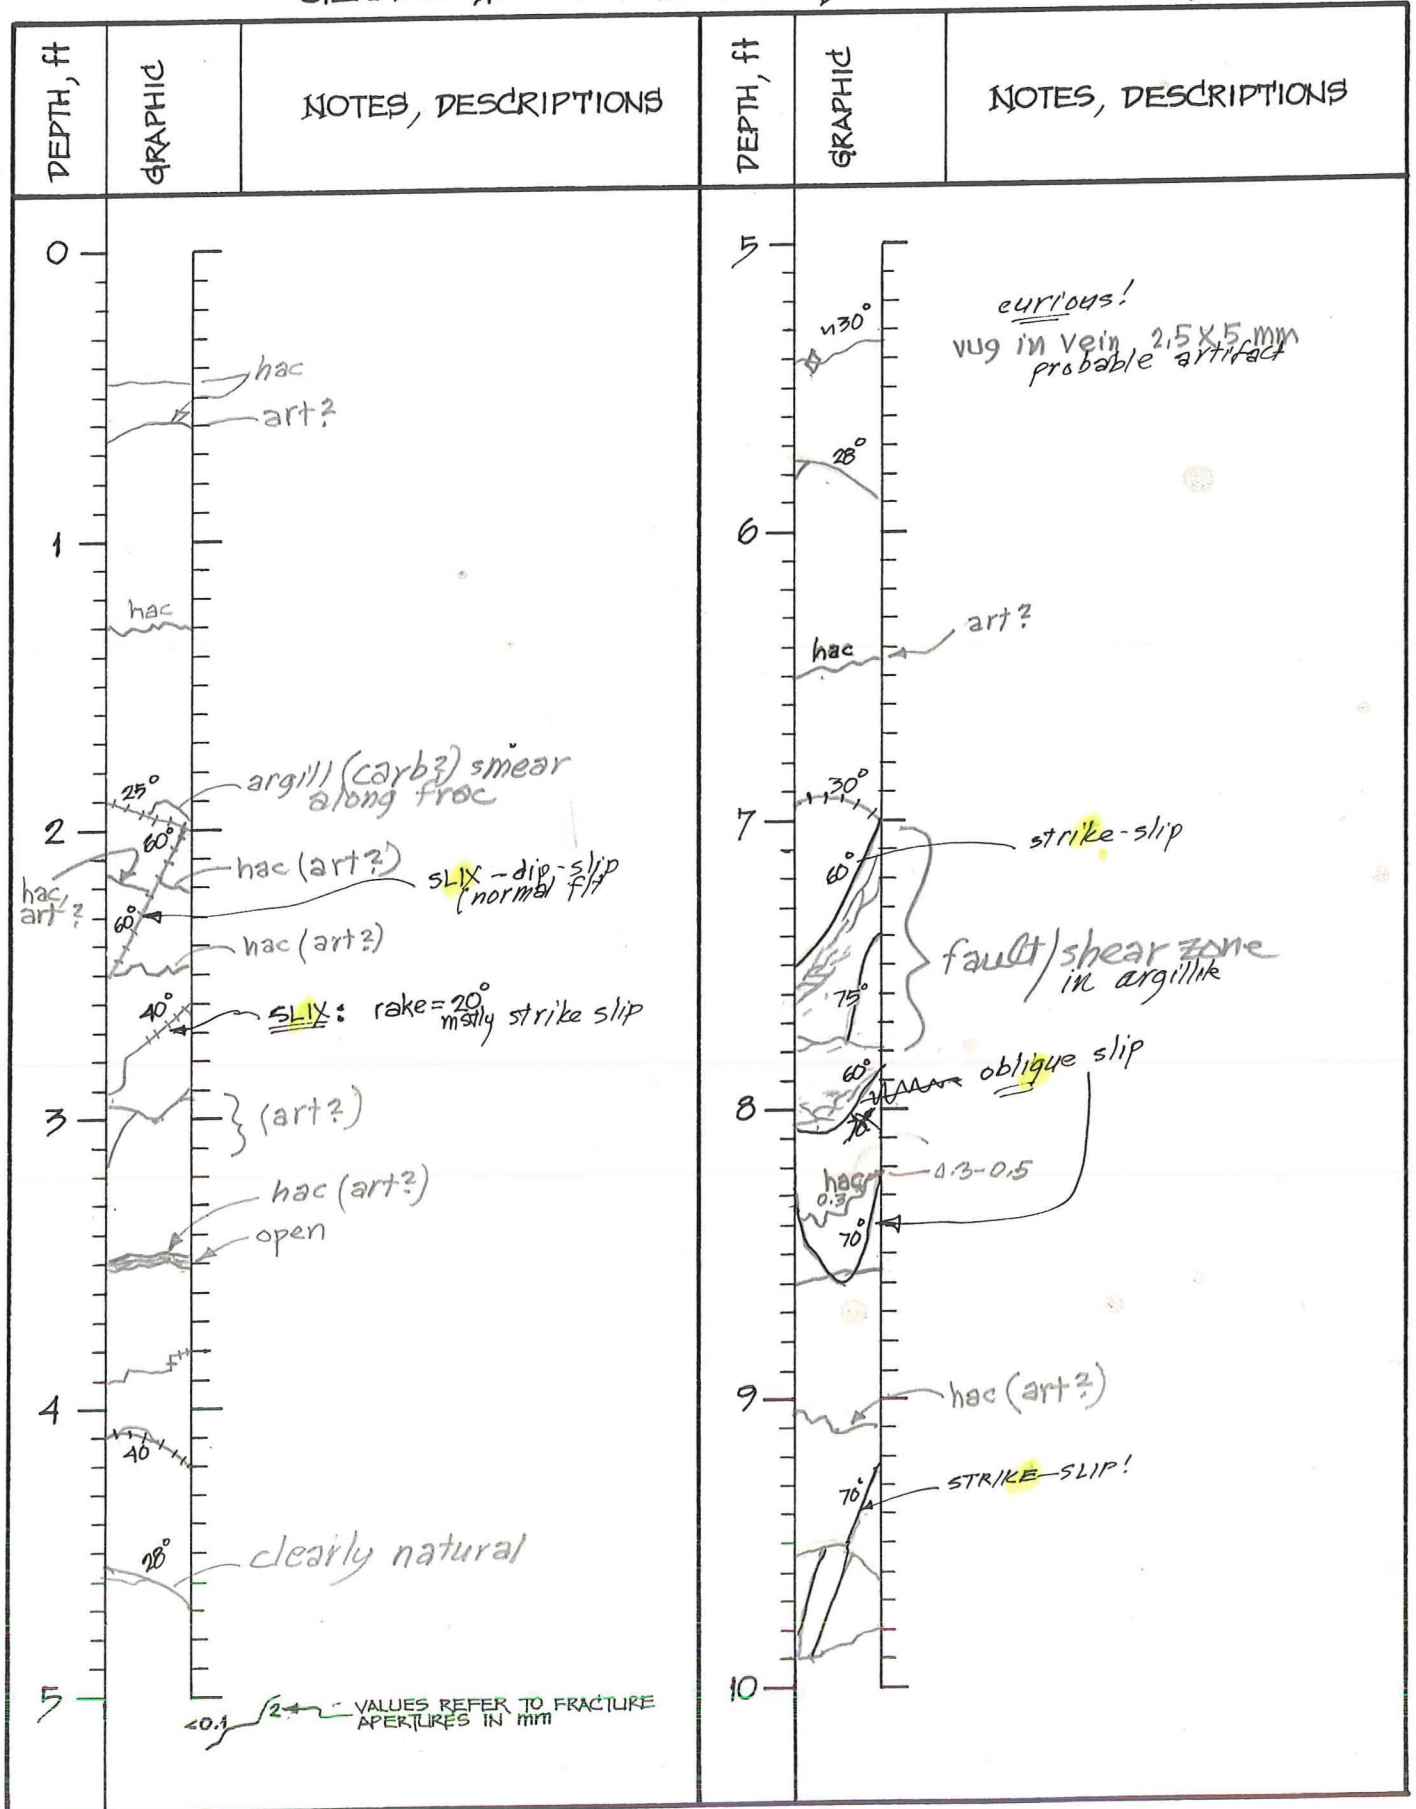 DEPTH, ft
GRAPHIC
NOTES, DESCRIPTIONS
0
hac
art?
1
hac
25°
argill (carb?) smear
along frac
2
60°
hac (art?)
hac,
art?
SLIX - dip-slip
(normal flt
60°
hac (art?)
40°
SLIX: rake = 20°
mstly strike slip
3
(art?)
hac (art?)
open
4
40
28°
clearly natural
5
<0.1
2
VALUES REFER TO FRACTURE
APERTURES IN mm
DEPTH, ft
GRAPHIC
NOTES, DESCRIPTIONS
5
curious!
~30°
vug in vein 2.5 X 5 mm
probable artifact
28°
6
art?
hac
30°
7
strike-slip
60°
fault/shear zone
in argillite
75°
60°
oblique slip
8
hac
0.3-0.5
0.3
70°
9
hac (art?)
70°
STRIKE-SLIP!
10